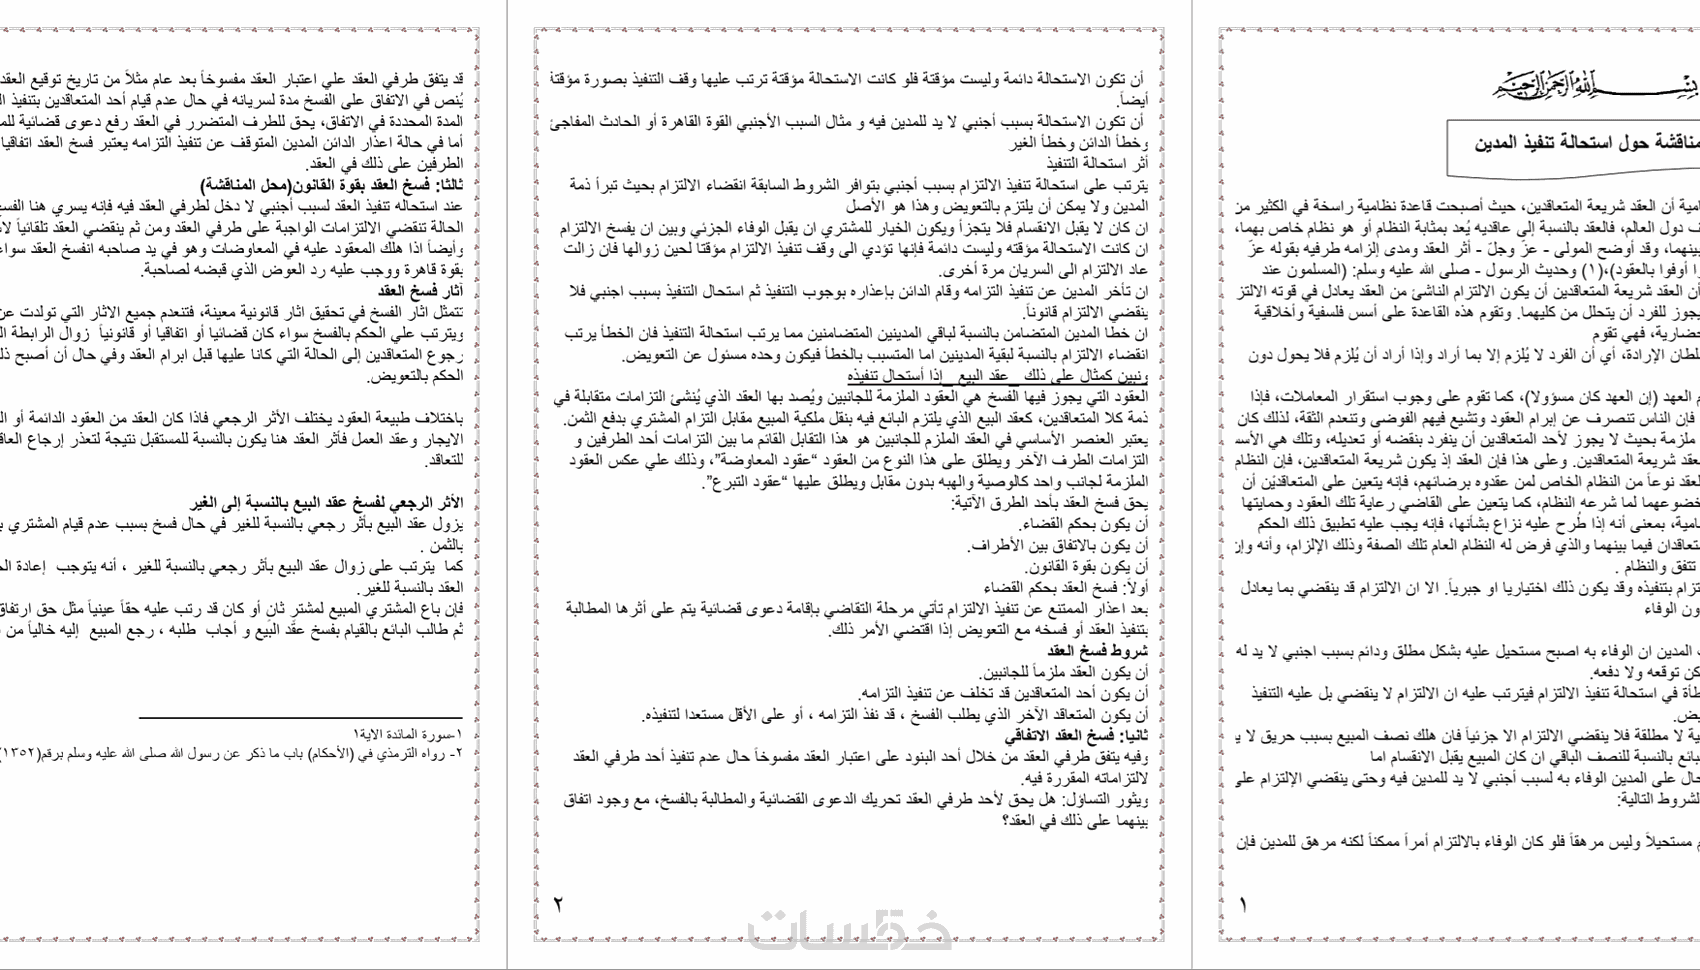 بسم الله الرحمن الرحيم
مناقشة حول استحالة تنفيذ المدين
أن العقد شريعة المتعاقدين، حيث أصبحت قاعدة نظامية راسخة في الكثير من
دول العالم، فالعقد بالنسبة إلى عاقديه يُعد بمثابة النظام أو هو نظام خاص بهما،
وقد أوضح المولى - عزّ وجلّ - أثر العقد ومدى إلزامه طرفيه بقوله عزّ
أوفوا بالعقود)،(١) وحديث الرسول - صلى الله عليه وسلم: (المسلمون عند
أن العقد شريعة المتعاقدين أن يكون الالتزام الناشئ من العقد يعادل في قوته الالتز
يجوز للفرد أن يتحلل من كليهما. وتقوم هذه القاعدة على أسس فلسفية وأخلاقية
فهي تقوم
الإرادة، أي أن الفرد لا يُلزم إلا بما أراد وإذا أراد أن يُلزم فلا يحول دون
العهد (إن العهد كان مسؤولا)، كما تقوم على وجوب استقرار المعاملات، فإذا
فإن الناس تنصرف عن إبرام العقود وتشيع فيهم الفوضى وتنعدم الثقة، لذلك كان
ملزمة بحيث لا يجوز لأحد المتعاقدين أن ينفرد بنقضه أو تعديله، وتلك هي الأسـ
شريعة المتعاقدين. وعلى هذا فإن العقد إذ يكون شريعة المتعاقدين، فإن النظام
نوعاً من النظام الخاص لمن عقدوه برضائهم، فإنه يتعين على المتعاقديْن أن
لما شرعه النظام، كما يتعين على القاضي رعاية تلك العقود وحمايتها
بمعنى أنه إذا طُرح عليه نزاع بشأنها، فإنه يجب عليه تطبيق ذلك الحكم
فيما بينهما والذي فرض له النظام العام تلك الصفة وذلك الإلزام، وأنه وإن
تتفق والنظام .
بتنفيذه وقد يكون ذلك اختياريا او جبرياً. الا ان الالتزام قد ينقضي بما يعادل
الوفاء
المدين ان الوفاء به اصبح مستحيل عليه بشكل مطلق ودائم بسبب اجنبي لا يد له
توقعه ولا دفعه.
في استحالة تنفيذ الالتزام فيترتب عليه ان الالتزام لا ينقضي بل عليه التنفيذ
لا مطلقة فلا ينقضي الالتزام الا جزئياً فان هلك نصف المبيع بسبب حريق لا ي
بالنسبة للنصف الباقي ان كان المبيع يقبل الانقسام اما
على المدين الوفاء به لسبب أجنبي لا يد للمدين فيه وحتى ينقضي الإلتزام على
التالية:
مستحيلاً وليس مرهقاً فلو كان الوفاء بالالتزام أمراً ممكناً لكنه مرهق للمدين فإن
١
أن تكون الاستحالة دائمة وليست مؤقتة فلو كانت الاستحالة مؤقتة ترتب عليها وقف التنفيذ بصورة مؤقتة
أيضاً.
أن تكون الاستحالة بسبب أجنبي لا يد للمدين فيه و مثال السبب الأجنبي القوة القاهرة أو الحادث المفاجئ
وخطأ الدائن وخطأ الغير
أثر استحالة التنفيذ
يترتب على استحالة تنفيذ الالتزام بسبب أجنبي بتوافر الشروط السابقة انقضاء الالتزام بحيث تبرأ ذمة
المدين ولا يمكن أن يلتزم بالتعويض وهذا هو الأصل
ان كان لا يقبل الانقسام فلا يتجزأ ويكون الخيار للمشتري ان يقبل الوفاء الجزئي وبين ان يفسخ الالتزام
ان كانت الاستحالة مؤقته وليست دائمة فإنها تؤدي الى وقف تنفيذ الالتزام مؤقتا لحين زوالها فان زالت
عاد الالتزام الى السريان مرة أخرى.
ان تأخر المدين عن تنفيذ التزامه وقام الدائن بإعذاره بوجوب التنفيذ ثم استحال التنفيذ بسبب اجنبي فلا
ينقضي الالتزام قانوناً.
ان خطا المدين المتضامن بالنسبة لباقي المدينين المتضامنين مما يرتب استحالة التنفيذ فان الخطأ يرتب
انقضاء الالتزام بالنسبة لبقية المدينين اما المتسبب بالخطأ فيكون وحده مسئول عن التعويض.
ونبين كمثال على ذلك _عقد البيع _إذا أستحال تنفيذه
العقود التي يجوز فيها الفسخ هي العقود الملزمة للجانبين ويُصد بها العقد الذي يُنشئ التزامات متقابلة في
ذمة كلا المتعاقدين، كعقد البيع الذي يلتزم البائع فيه بنقل ملكية المبيع مقابل التزام المشتري بدفع الثمن.
يعتبر العنصر الأساسي في العقد الملزم للجانبين هو هذا التقابل القائم ما بين التزامات أحد الطرفين و
التزامات الطرف الآخر ويطلق على هذا النوع من العقود “عقود المعاوضة”، وذلك علي عكس العقود
الملزمة لجانب واحد كالوصية والهبه بدون مقابل ويطلق عليها “عقود التبرع”.
يحق فسخ العقد بأحد الطرق الآتية:
أن يكون بحكم القضاء.
أن يكون بالاتفاق بين الأطراف.
أن يكون بقوة القانون.
أولاً: فسخ العقد بحكم القضاء
بعد اعذار الممتنع عن تنفيذ الالتزام تأتي مرحلة التقاضي بإقامة دعوى قضائية يتم على أثرها المطالبة
بتنفيذ العقد أو فسخه مع التعويض إذا اقتضي الأمر ذلك.
شروط فسخ العقد
أن يكون العقد ملزماً للجانبين.
أن يكون أحد المتعاقدين قد تخلف عن تنفيذ التزامه.
أن يكون المتعاقد الآخر الذي يطلب الفسخ ، قد نفذ التزامه ، أو على الأقل مستعدا لتنفيذه.
ثانيا: فسخ العقد الاتفاقي
وفيه يتفق طرفي العقد من خلال أحد البنود على اعتبار العقد مفسوخاً حال عدم تنفيذ أحد طرفي العقد
لالتزاماته المقررة فيه.
ويثور التساؤل: هل يحق لأحد طرفي العقد تحريك الدعوى القضائية والمطالبة بالفسخ، مع وجود اتفاق
بينهما على ذلك في العقد؟
٢
خمسات
قد يتفق طرفي العقد علي اعتبار العقد مفسوخاً بعد عام مثلاً من تاريخ توقيع العقد
يُنص في الاتفاق على الفسخ مدة لسريانه في حال عدم قيام أحد المتعاقدين بتنفيذ
المدة المحددة في الاتفاق، يحق للطرف المتضرر في العقد رفع دعوى قضائية
أما في حالة اعذار الدائن المدين المتوقف عن تنفيذ التزامه يعتبر فسخ العقد اتفاقيا
الطرفين على ذلك في العقد.
ثالثا: فسخ العقد بقوة القانون(محل المناقشة)
عند استحاله تنفيذ العقد لسبب أجنبي لا دخل لطرفي العقد فيه فإنه يسري هنا الفسخ
الحالة تنقضي الالتزامات الواجبة على طرفي العقد ومن ثم ينقضي العقد تلقائياً
وأيضاً اذا هلك المعقود عليه في المعاوضات وهو في يد صاحبه انفسخ العقد سواء
بقوة قاهرة ووجب عليه رد العوض الذي قبضه لصاحبة.
آثار فسخ العقد
تتمثل اثار الفسخ في تحقيق اثار قانونية معينة، فتنعدم جميع الاثار التي تولدت عن
ويترتب علي الحكم بالفسخ سواء كان قضائيا أو اتفاقيا أو قانونياً زوال الرابطة
رجوع المتعاقدين إلى الحالة التي كانا عليها قبل ابرام العقد وفي حال أن أصبح
الحكم بالتعويض.
باختلاف طبيعة العقود يختلف الأثر الرجعي فاذا كان العقد من العقود الدائمة أو
الايجار وعقد العمل فأثر العقد هنا يكون بالنسبة للمستقبل نتيجة لتعذر إرجاع
للتعاقد.
الأثر الرجعي لفسخ عقد البيع بالنسبة إلى الغير
يزول عقد البيع بأثر رجعي بالنسبة للغير في حال فسخ بسبب عدم قيام المشتري
بالثمن .
كما يترتب على زوال عقد البيع بأثر رجعي بالنسبة للغير ، أنه يتوجب إعادة
العقد بالنسبة للغير.
فإن باع المشتري المبيع لمشترٍ ثانٍ أو كان قد رتب عليه حقاً عينياً مثل حق ارتفاق
ثم طالب البائع بالقيام بفسخ عقد البيع و أجاب طلبه ، رجع المبيع إليه خالياً من
١-سورة المائدة الاية١
٢- رواه الترمذي في (الأحكام) باب ما ذكر عن رسول الله صلى الله عليه وسلم برقم(١٣٥٢)